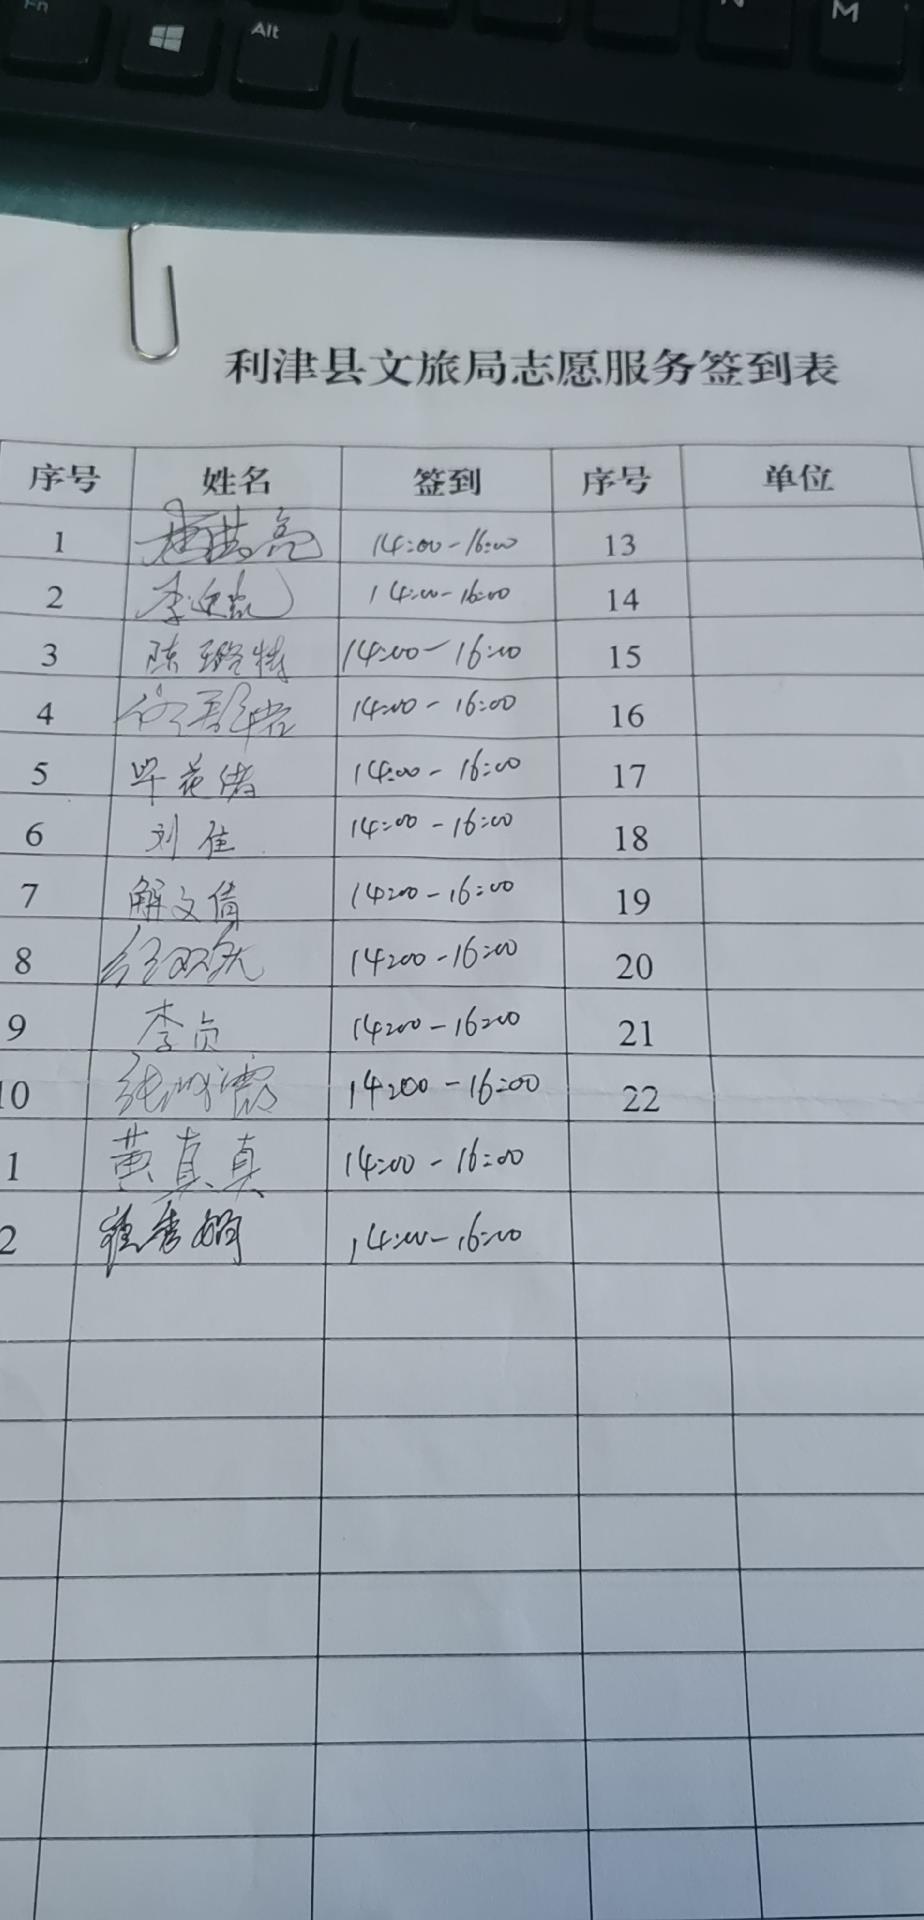 Fn
Alt
N
M
利津县文旅局志愿服务签到表
序号 姓名 签到 序号 单位
1 亮 14:00-16:00 13
2 李 14:00-16:00 14
3 陈璐特 14:00-16:00 15
4 14:00-16:00 16
5 毕花绪 14:00-16:00 17
6 刘佳 14:00-16:00 18
7 解文倩 14:00-16:00 19
8 14:00-16:00 20
9 李贞 14:00-16:00 21
10 张 霞 14:00-16:00 22
1 黄真真 14:00-16:00
2 秀娟 14:00-16:00